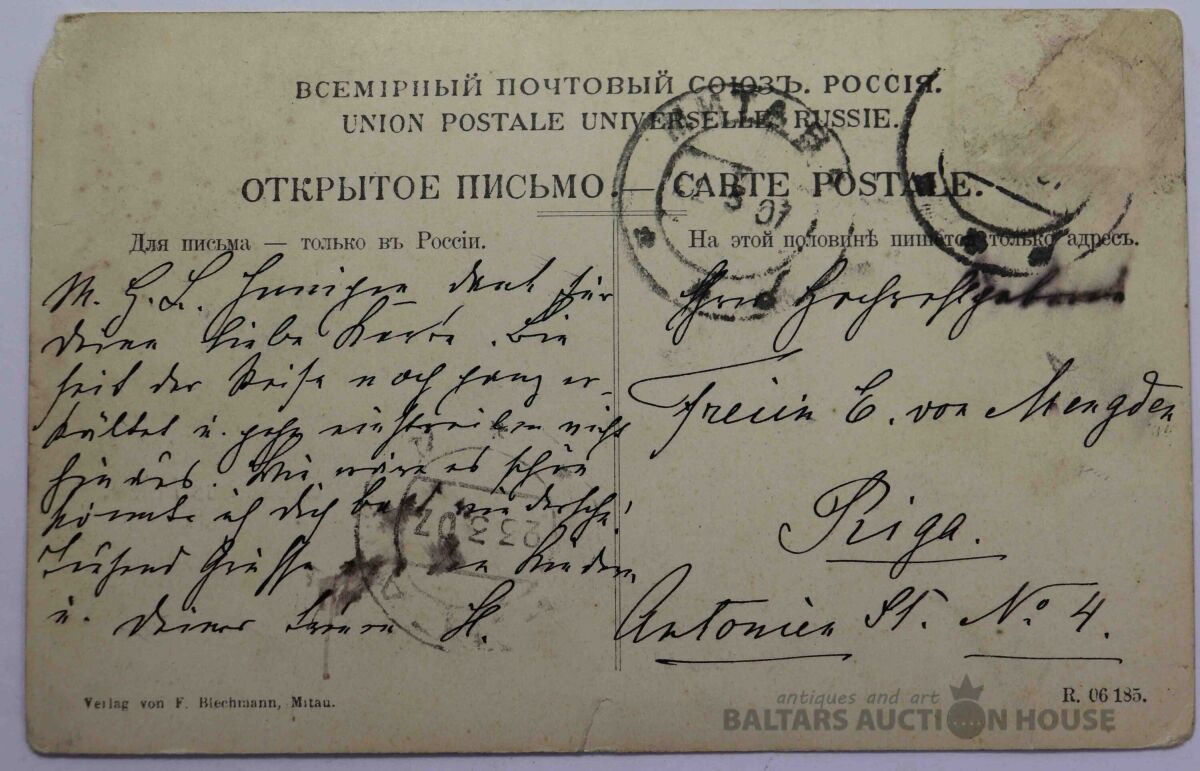 ВСЕМІРНЫЙ ПОЧТОВЫЙ СОЮЗЪ. РОССІЯ.
UNION POSTALE UNIVERSELLE. RUSSIE.
ОТКРЫТОЕ ПИСЬМО. — CARTE POSTALE.
Для письма — только въ Россіи.
На этой половинѣ пишется только адресъ.
МИТАВА
3 07
M. H. L. Innigen Dank für
Deine liebe Karte. Bin
seit der Reise noch ganz er-
kältet u. gehe einstweilen nicht
hinaus. Wie wäre es schön
könnte ich Dich bald wiedersehn!
Tausend Grüsse von den Kindern
u. Deiner treuen H.
23 3 07
Ihrer Hochwohlgeboren
Freiin E. von Mengden
Riga.
Antonien St. No 4.
Verlag von F. Blechmann, Mitau.
R. 06 185.
antiques and art
BALTARS AUCTION HOUSE